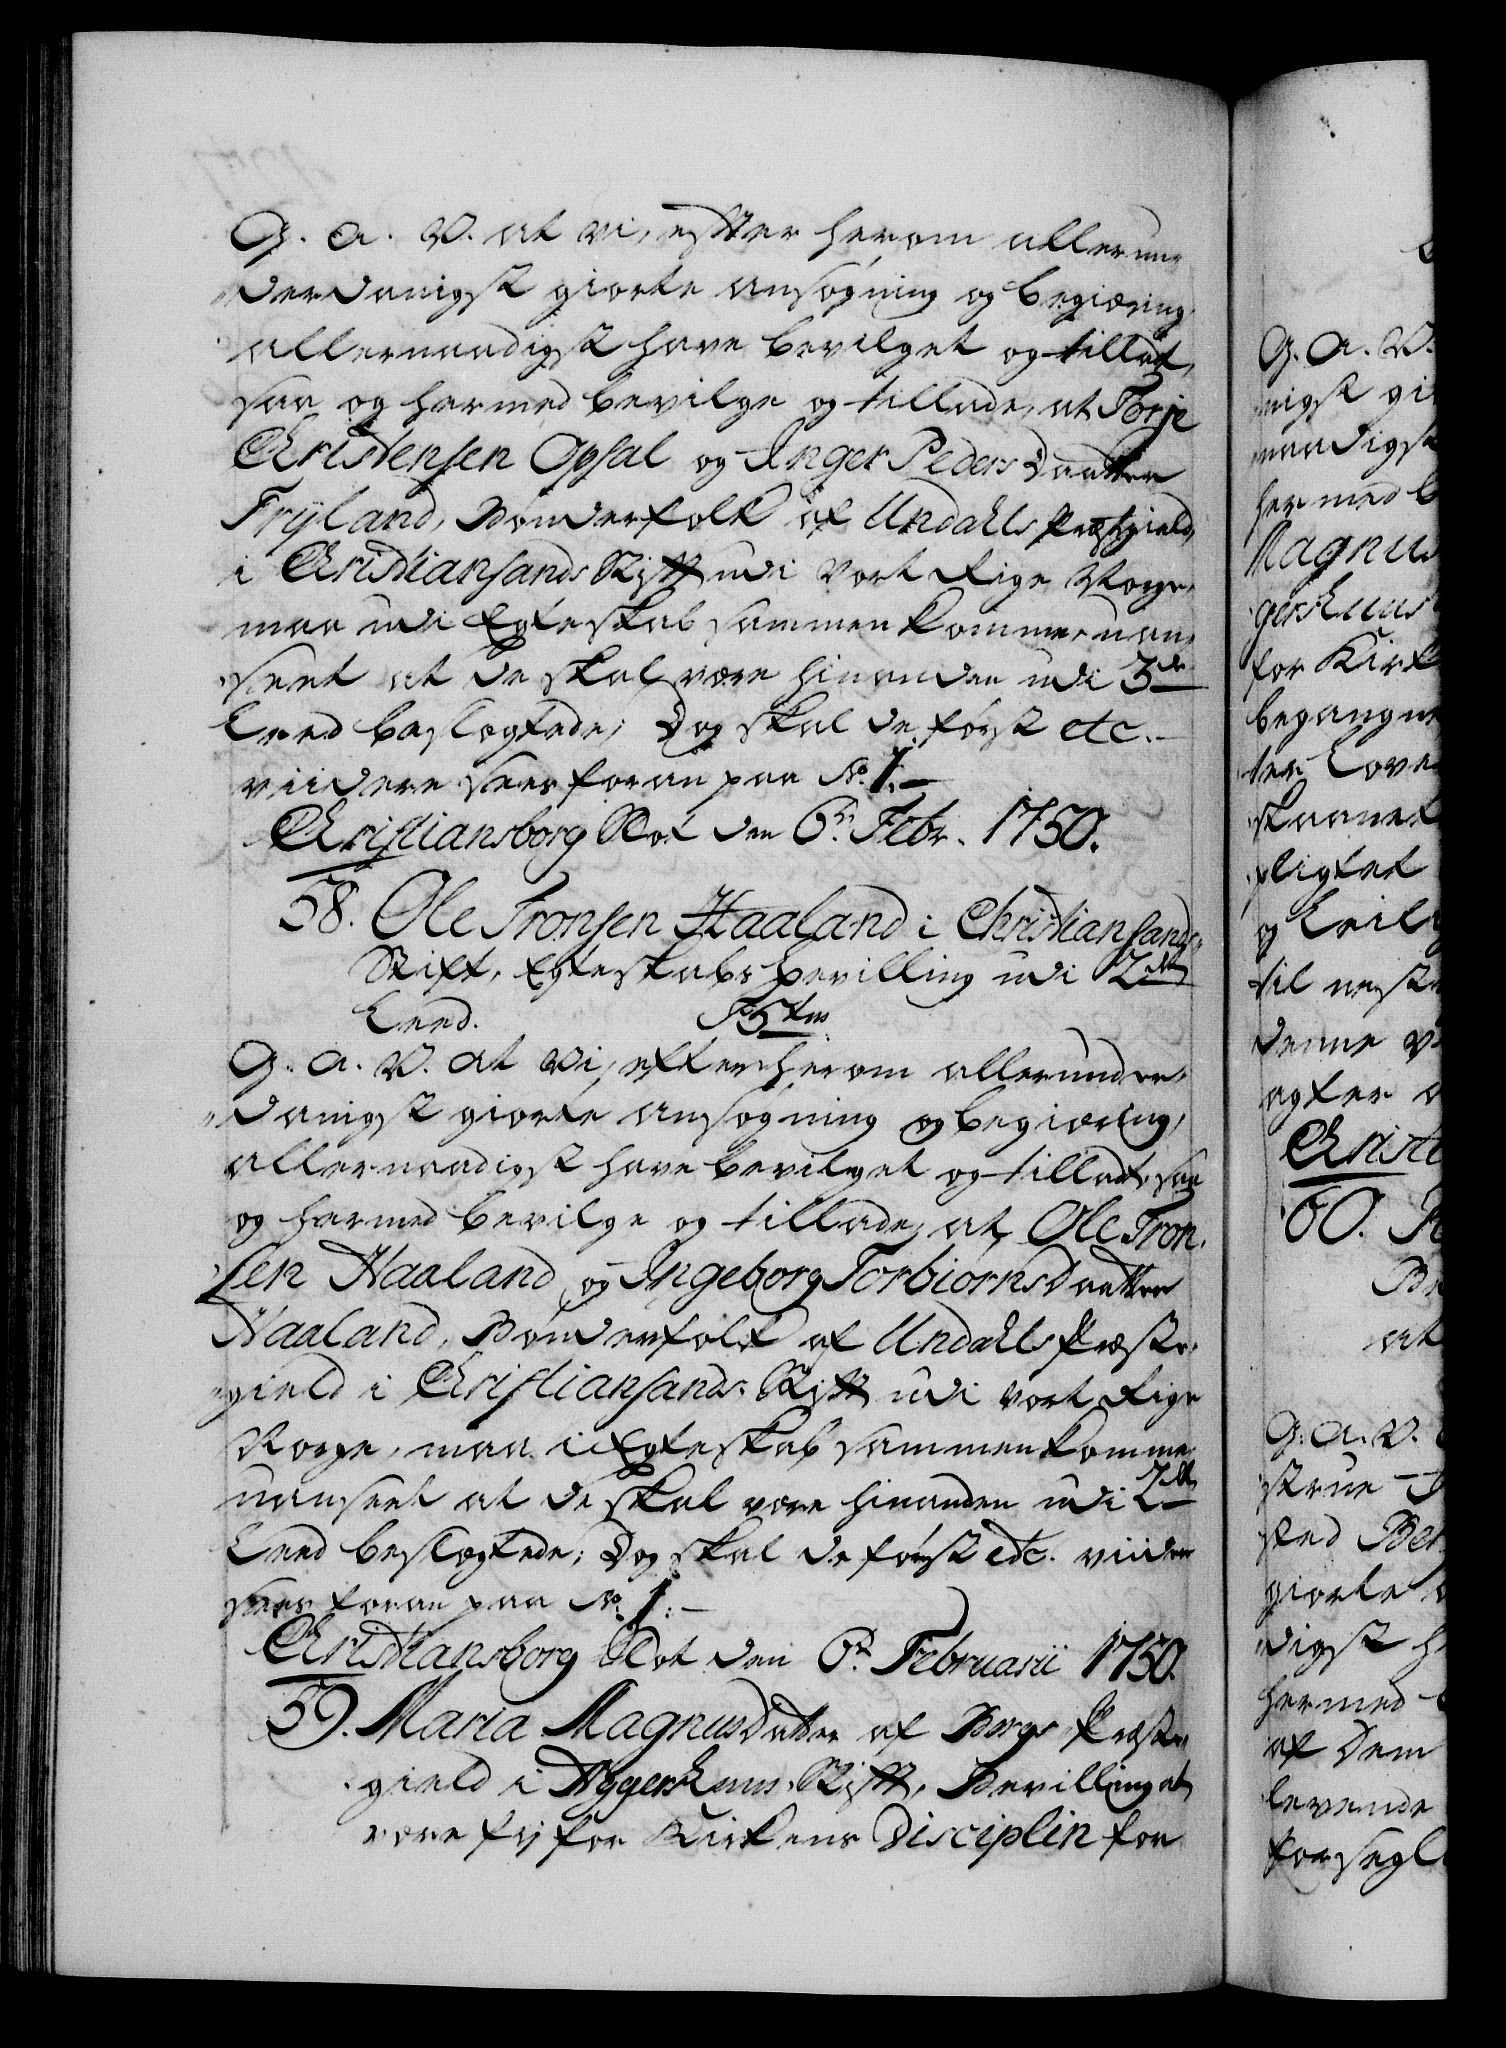 G. A. V. at vi, efter herom allerun-
derdanigst giorte ansøgning og begiering,
allernaadigst have bevilget og tilladt,
saa og hermed bevilge og tillade, at Torje
Christensen Opsal og Inger PedersDaatter
Frÿland, Bønderfolk af Undahls Præstegield,
i Christiansands Stift udi Vort Rige Norge,
maa udi Egteskab sammenkomme, uan-
seet at de skal være hinanden udi 3de
Leed beslægtede; Dog skal de først etc.
viidere sees foran paa No. 1.
Christiansborg Slot den 6te Febr. 1750.
58. Ole Tronsen Haaland i Christiansands
Stift, Egteskabs bevilling udi 2det
Leed.
G. A. V. at Vi, efter herom allerunder-
danigst giorte ansøgning og begiering,
allernaadigst have bevilget og tilladt, saa
og hermed bevilge og tillade, at Ole Tron-
sen Haaland og Ingeborg TorbiornsDaatter
Haaland, Bønderfolk af Undahls Præste-
gield i Christiansands Stift udi vort Rige
Norge, maa i Egteskab sammenkomme
uanseet at de skal være hinanden udi 2det
Leed beslægtede; Dog skal de først etc. viidere
sees foran paa No. 1.
Christiansborg Slot den 6te Februarii 1750.
59. Maria MagnusDatter af Borge Præste-
gield i Aggershuus Stift, Bevilling at
være frj for Kirkens Disciplin for
G. A. V.
nigst gi
naadigst
hermed b
Magnus
gershuus
for Kirk
begangne
ter Love
skaanet
pligtet
og
til neste
denne
agter
Christi
60.
at
G. A. V.
sted
giorte
digst h
hermed
af Dem
levende
forsegl